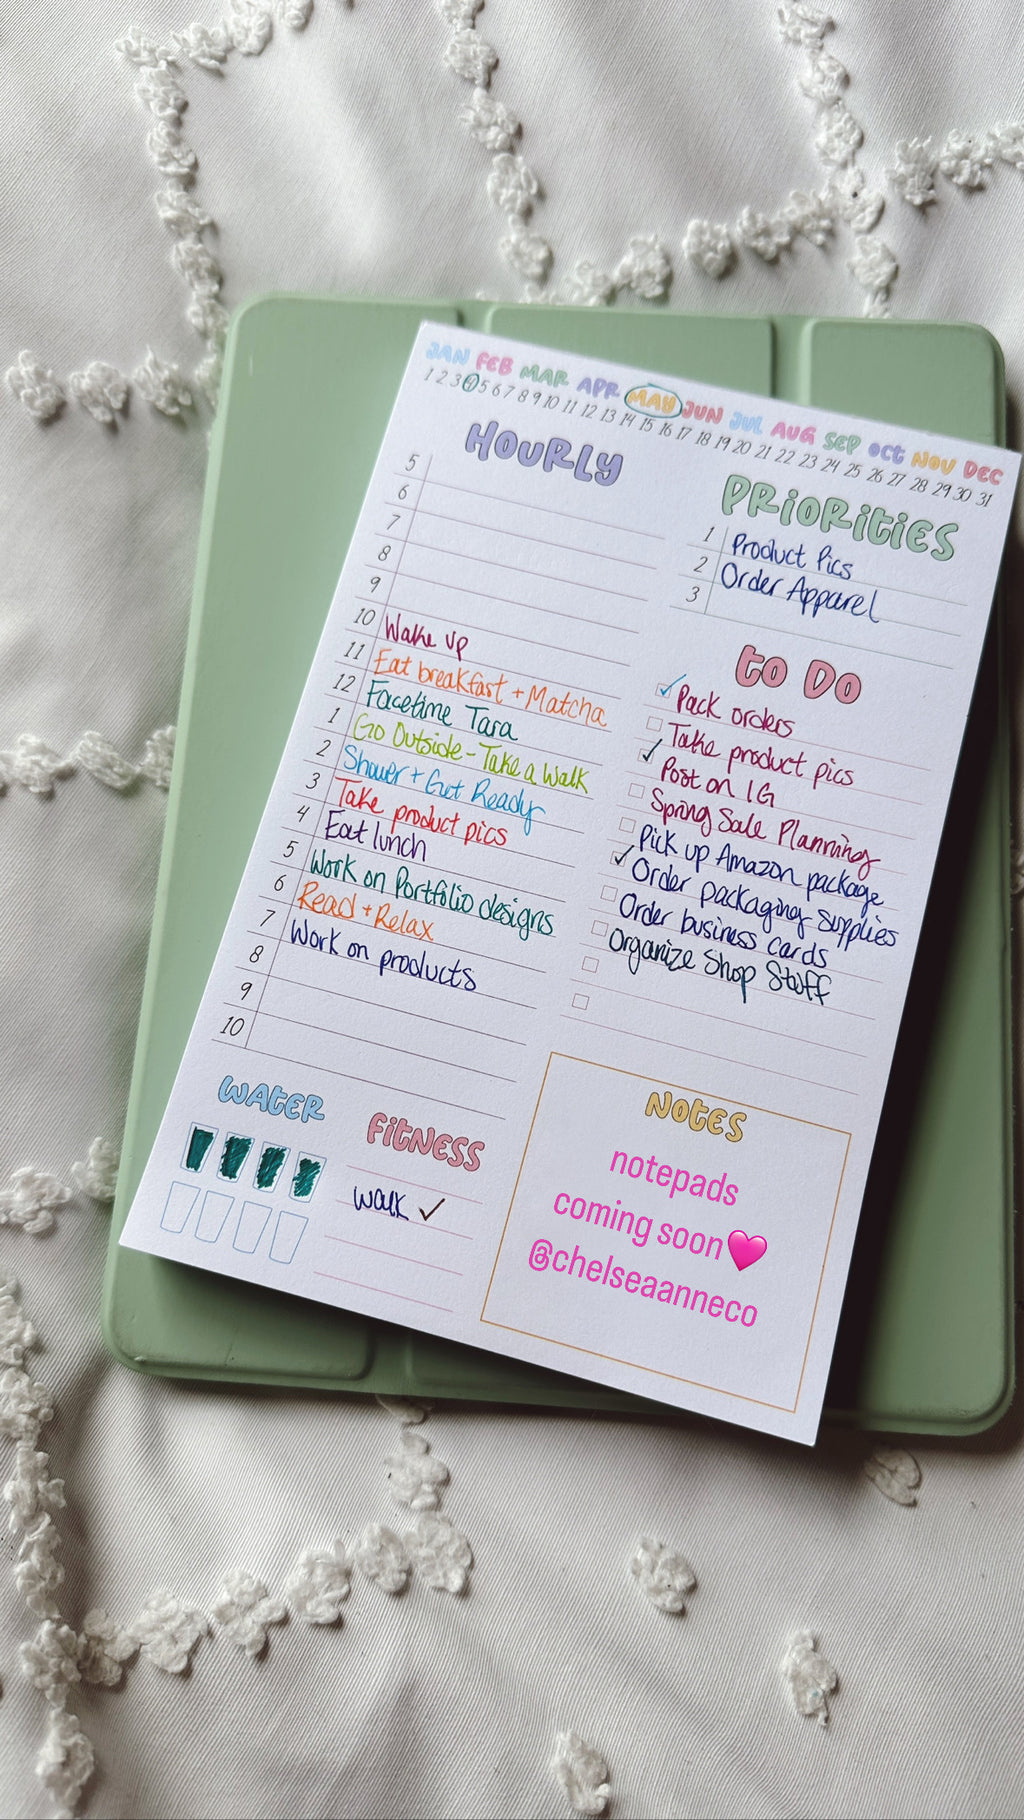 JAN FEB MAR APR MAY JUN JUL AUG SEP OCT NOV DEC
1 2 3 4 5 6 7 8 9 10 11 12 13 14 15 16 17 18 19 20 21 22 23 24 25 26 27 28 29 30 31
HOURLY
5
6
7
8
9
10 Wake up
11 Eat breakfast + Matcha
12 Facetime Tara
1 Go Outside - Take a Walk
2 Shower + Get Ready
3 Take product pics
4 Eat lunch
5 Work on Portfolio designs
6 Read + Relax
7 Work on products
8
9
10
PRIORITIES
1 Product Pics
2 Order Apparel
3
to Do
Pack orders
Take product pics
Post on IG
Spring Sale Planning
Pick up Amazon package
Order packaging supplies
Order business cards
Organize Shop Stuff
WATER
FITNESS
Walk ✓
NOTES
notepads
coming soon🩷
@chelseaanneco